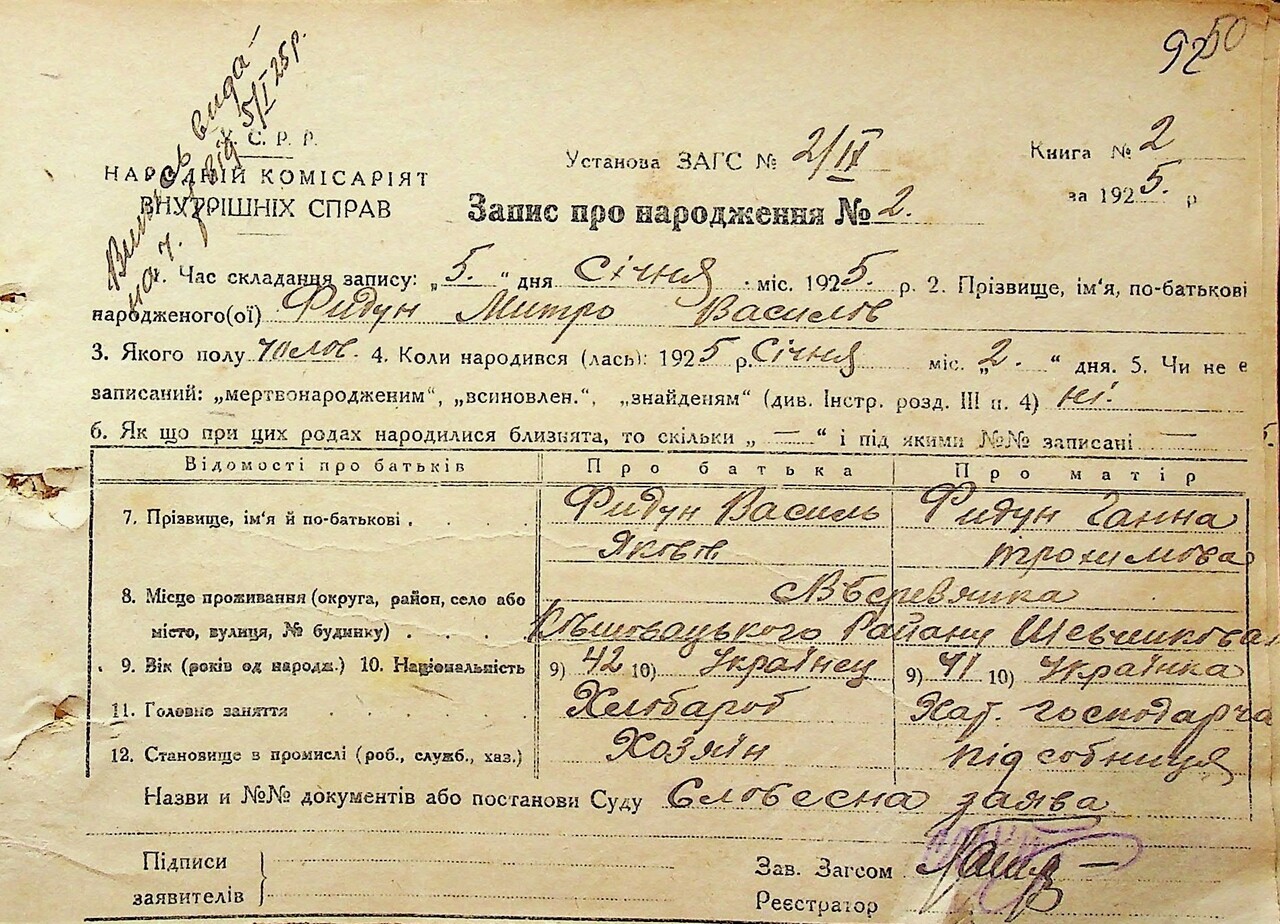 92 50
Випись видана
на ч. від 5/I 25 р.
С. Р. Р.
НАРОДНІЙ КОМІСАРІЯТ
ВНУТРІШНІХ СПРАВ
Установа ЗАГС № 2/IX
Книга № 2
за 1925. р
Запис про народження № 2.
1. Час складання запису: „5.“ дня Січня міс. 1925. р. 2. Прізвище, ім'я, по-батькові
народженого(ої) Фидун Митро Василов
3. Якого полу чолов. 4. Коли народився (лась): 1925 р. Січня міс. „2.“ дня. 5. Чи не є
записаний: „мертвонародженим“, „всиновлен.“, „знайденям“ (див. Інстр. розд. III п. 4) ні.
6. Як що при цих родах народилися близнята, то скільки „—“ і під якими №№ записані —
Відомості про батьків Про батька Про матір
7. Прізвище, ім'я й по-батькові . Фидун Василь Фидун Ганна
Яковов Трохимова
8. Місце проживання (округа, район, село або
місто, вулиця, № будинку) . Району
9. Вік (років од народж.) 10. Національність 9) 42 10) Українец 9) 41 10) Українка
11. Головне заняття Хлобароб Хат. господарча
12. Становище в промислі (роб., служб., хаз.) Хозяїн підсобниця
Назви и №№ документів або постанови Суду Словесна заява
Підписи
заявителів
Зав. Загсом
Реєстратор